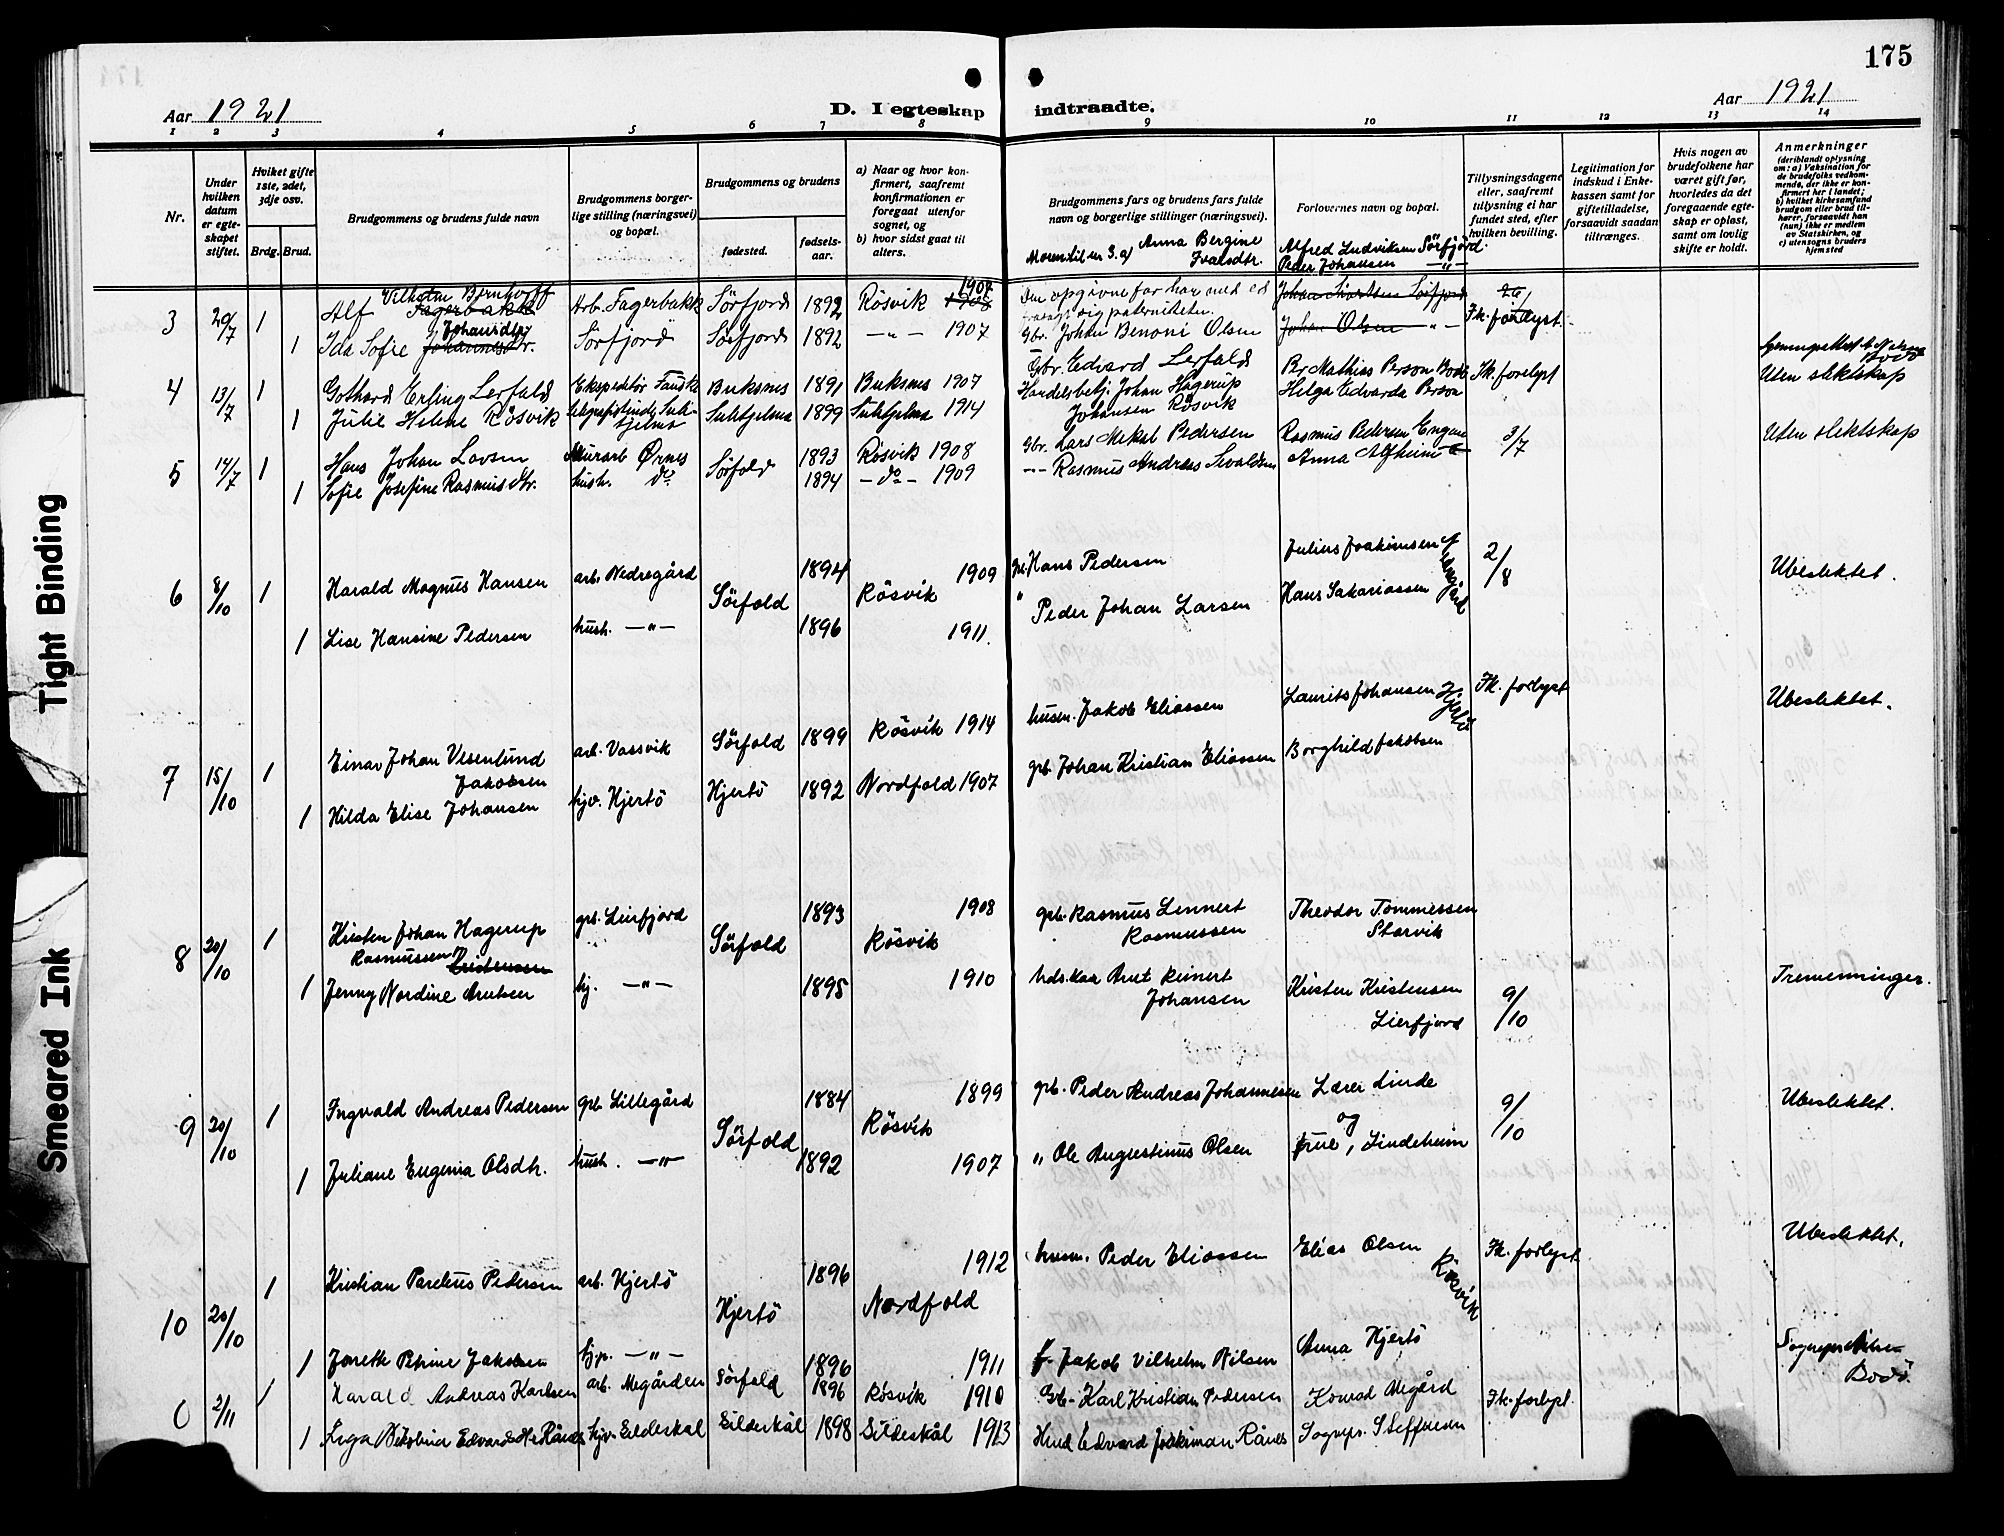 175
Aar 1921
D. I egteskap indtraadte.
Aar 1921
1 2 3 4 5 6 7 8 9 10 11 12 13 14
Nr.
Under hvilken datum er egteskapet stiftet.
Hvilket gifte 1ste, 2det, 3dje osv.
Brdg. Brud.
Brudgommens og brudens fulde navn
Brudgommens borgerlige stilling (næringsvei) og bopæl.
Brudgommens og brudens
fødested.
fødselsaar.
a) Naar og hvor konfirmert, saafremt konfirmationen er foregaat utenfor sognet, og
b) hvor sidst gaat til alters.
Brudgommens fars og brudens fars fulde navn og borgerlige stillinger (næringsvei).
Forlovernes navn og bopæl.
Tillysningsdagene eller, saafremt tillysning ei har fundet sted, efter hvilken bevilling.
Legitimation for indskud i Enkekassen samt for giftetilladelse, forsaavidt saadan tiltrænges.
Hvis nogen av brudefolkene har været gift før, hvorledes da det foregaaende egteskap er opløst, samt om lovlig skifte er holdt.
Anmerkninger
(deriblandt oplysning om: a) Vaksination for de brudefolks vedkommende, der ikke er konfirmert her i landet; b) hvilket kirkesamfund brudgom eller brud tilhører, forsaavidt han (hun) ikke er medlem av Statskirken, og c) utensogns bruders hjemsted
Moren til nr 3. a) Anna Bergine Ivarsdtr. Alfred Ludviksen Sörfjord.
Peder Johansen —"—
3 20/7 1 Alf Vilhelm Bernhoff Fagerbakk Arb. Fagerbakk Sörfjord 1892 Rösvik 1907 1908 Den opgivne far har med ed fralagt sig paterniteten. Fk. forelyst.
1 Ida Sofie Johannesdtr. Johansdtr Sörfjord Sörfjord 1892 —"— 1907 Gbr. Johan Benoni Olsen Johan Olsen —"—
4 13/7 1 Gothard Erling Lerfald Ekspeditør Fauske Buksnes 1891 Buksnes 1907 Gbr. Edvard Lerfald Pr Mathias Person Bodö Fk. forelyst Uten slektskap
1 Julie Helene Rösvik Sulitjelma 1899 Sulitjelma 1914 Handelsbetj. Johan Hagerup Johansen Rösvik Helga Edvarda Person
5 14/7 1 Hans Johan Larsen Murarb Ørnes Sörfold 1893 Rösvik 1908 Gbr. Lars Mikal Pedersen Rasmus Pedersen Engan 3/7 Uten slektskap
1 Sofie Josefine Rasmusdtr. hush. do 1894 —do— 1909 —"— Rasmus Andreas Sivaldsen Anna Alfheim
6 8/10 1 Harald Magnus Hansen arb. Nedregård Sörfold 1894 Rösvik 1909 gr. Hans Pedersen Julius Joakimsen 2/8 Ubeslektet.
1 Lise Hansine Pedersen hush. —"— 1896 1911. " Peder Johan Larsen Hans Sakariassen
7 15/10 1 Einar Johan Vesenlund Jakobsen arb. Vassvik Sörfold 1899 Rösvik 1914 husm. Jakob Eliassen Laurits Johansen Hjertö Fk. forlyst Ubeslektet.
1 Hilda Elise Johansen hjv. Hjertö Hjertö 1892 Nordfold 1907 grb. Johan Kristian Eliassen Borghild Jakobsen
8 20/10 1 Kristen Johan Hagerup Rasmussen Kristensen grb. Leirfjord Sörfold 1893 Rösvik 1908 grb. Rasmus Lennert Rasmussen Theodor Tommessen Storvik
1 Jenny Nordine Arntsen hj. —"— 1895 1910 hds.kar Arnt Reinert Johansen Kristen Kristensen Lierfjord 9/10 Tremenninger.
9 20/10 1 Ingvald Andreas Pedersen grb. Lillegård Sörfold 1884 Rösvik 1899 grb. Peder Andreas Johannesen Lærer Linde og 9/10 Ubeslektet.
1 Juliane Eugenia Olsdtr. hush. —"— 1892 1907 " Ole Augustinus Olsen frue, Lindeheim
10 20/10 1 Kristian Parelius Pedersen arb. Hjertö Hjertö 1896 Nordfold 1912 husm. Peder Eliassen Elias Olsen Rösvik Fk. forlyst Ubeslektet.
1 Jonette Petrine Jakobsen hjp. —"— 1896 1911 f. Jakob Vilhelm Nilsen Anna Hjertö
2/11 1 Harald Andreas Karlsen arb. Megården Sörfold 1896 Rösvik 1910 Gb. Karl Kristian Pedersen Konrad Megård Fk. forlyst. Bodö.
1 hjv. Gildeskal Gildeskål 1898 Gildeskål 1913 Hmd Edvard Joakiman Rånes Sognepr. Steffensen
Tight Binding
Smeared Ink